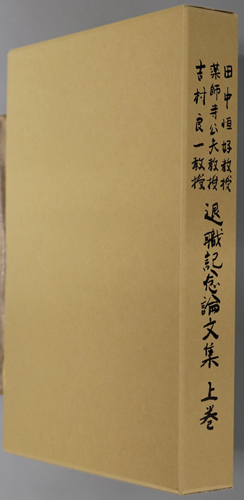 田中恒好教授
薬師寺公夫教授
吉村良一教授
退職記念論文集 上巻